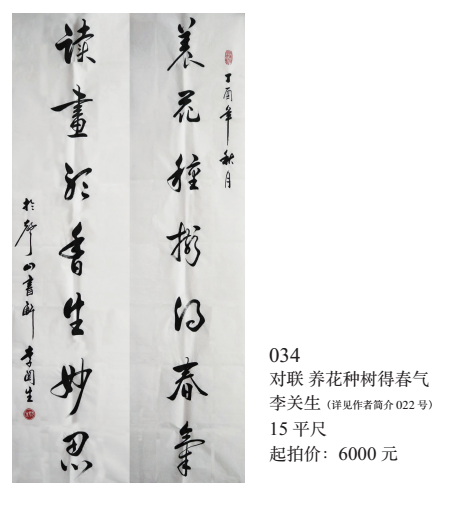 丁酉年秋月
养花種樹得春氣
读畫香生妙思
於山書
李関生
034
对联 养花种树得春气
李关生（详见作者简介 022 号）
15 平尺
起拍价：6000 元